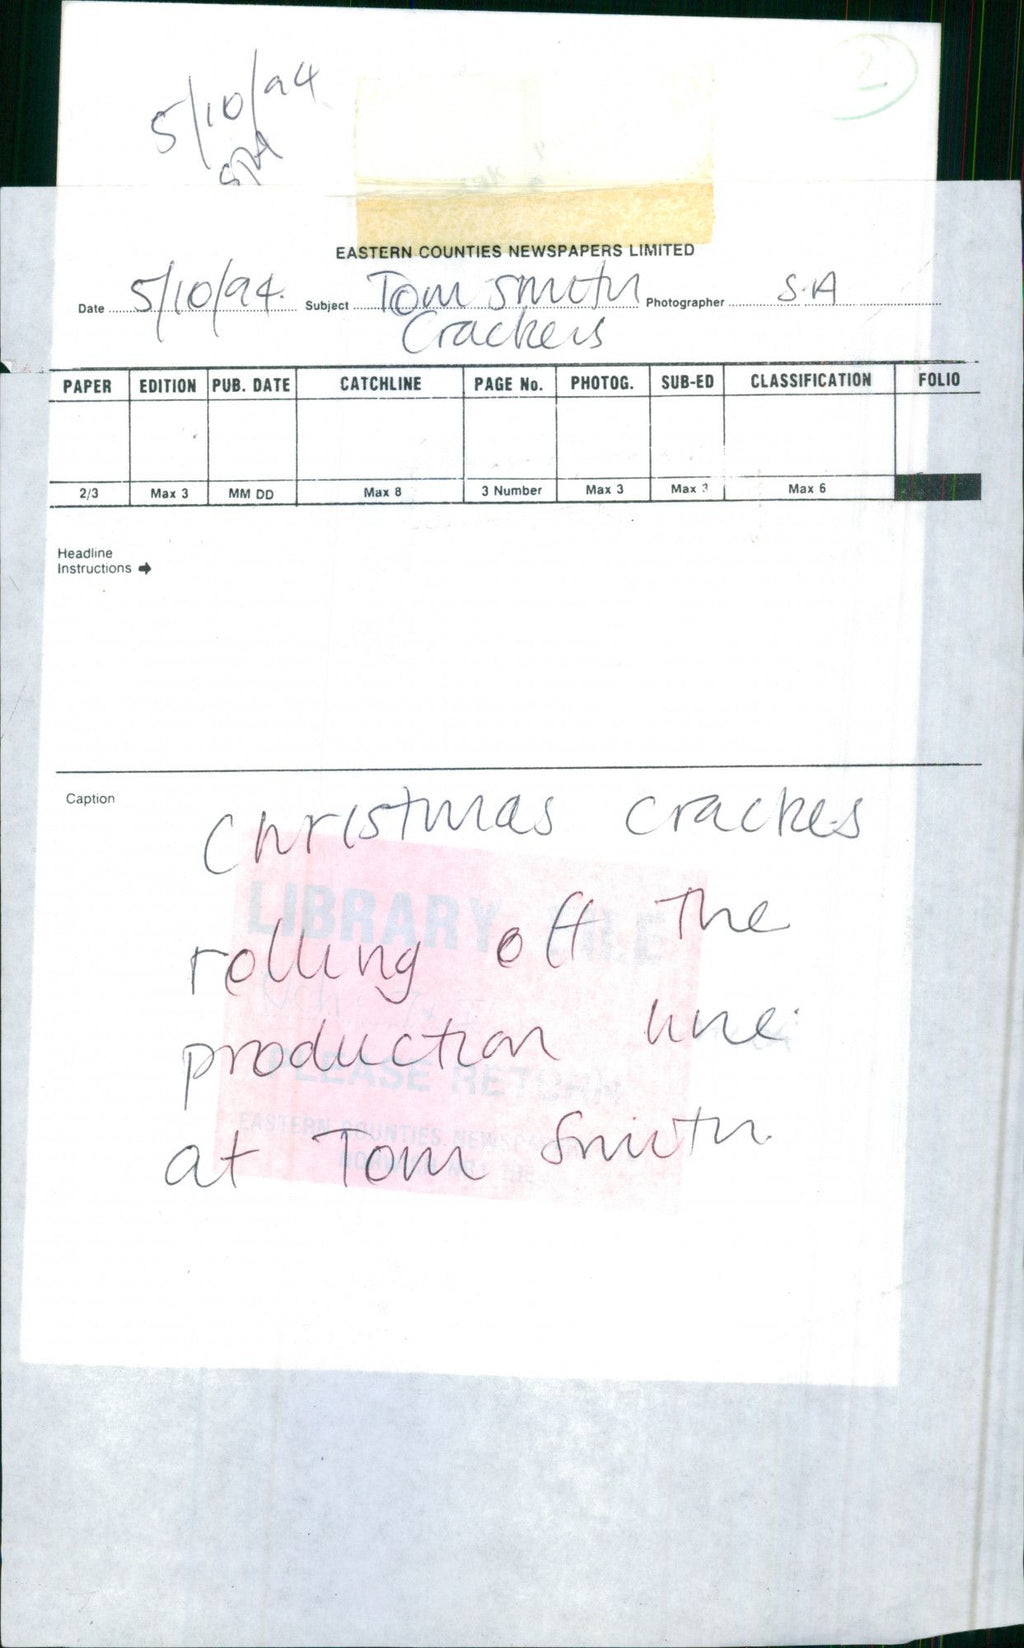 2
5/10/94
EASTERN COUNTIES NEWSPAPERS LIMITED
Date 5/10/94. Subject Tom Smith Photographer S.A
Crackers
PAPER EDITION PUB. DATE CATCHLINE PAGE No. PHOTOG. SUB-ED CLASSIFICATION FOLIO
2/3 Max 3 MM DD Max 8 3 Number Max 3 Max 3 Max 6
Headline
Instructions
Caption
Christmas crackes
rolling off the
production line
at Tom Smith.
LIBRARY FILE
PLEASE RETURN
EASTERN COUNTIES